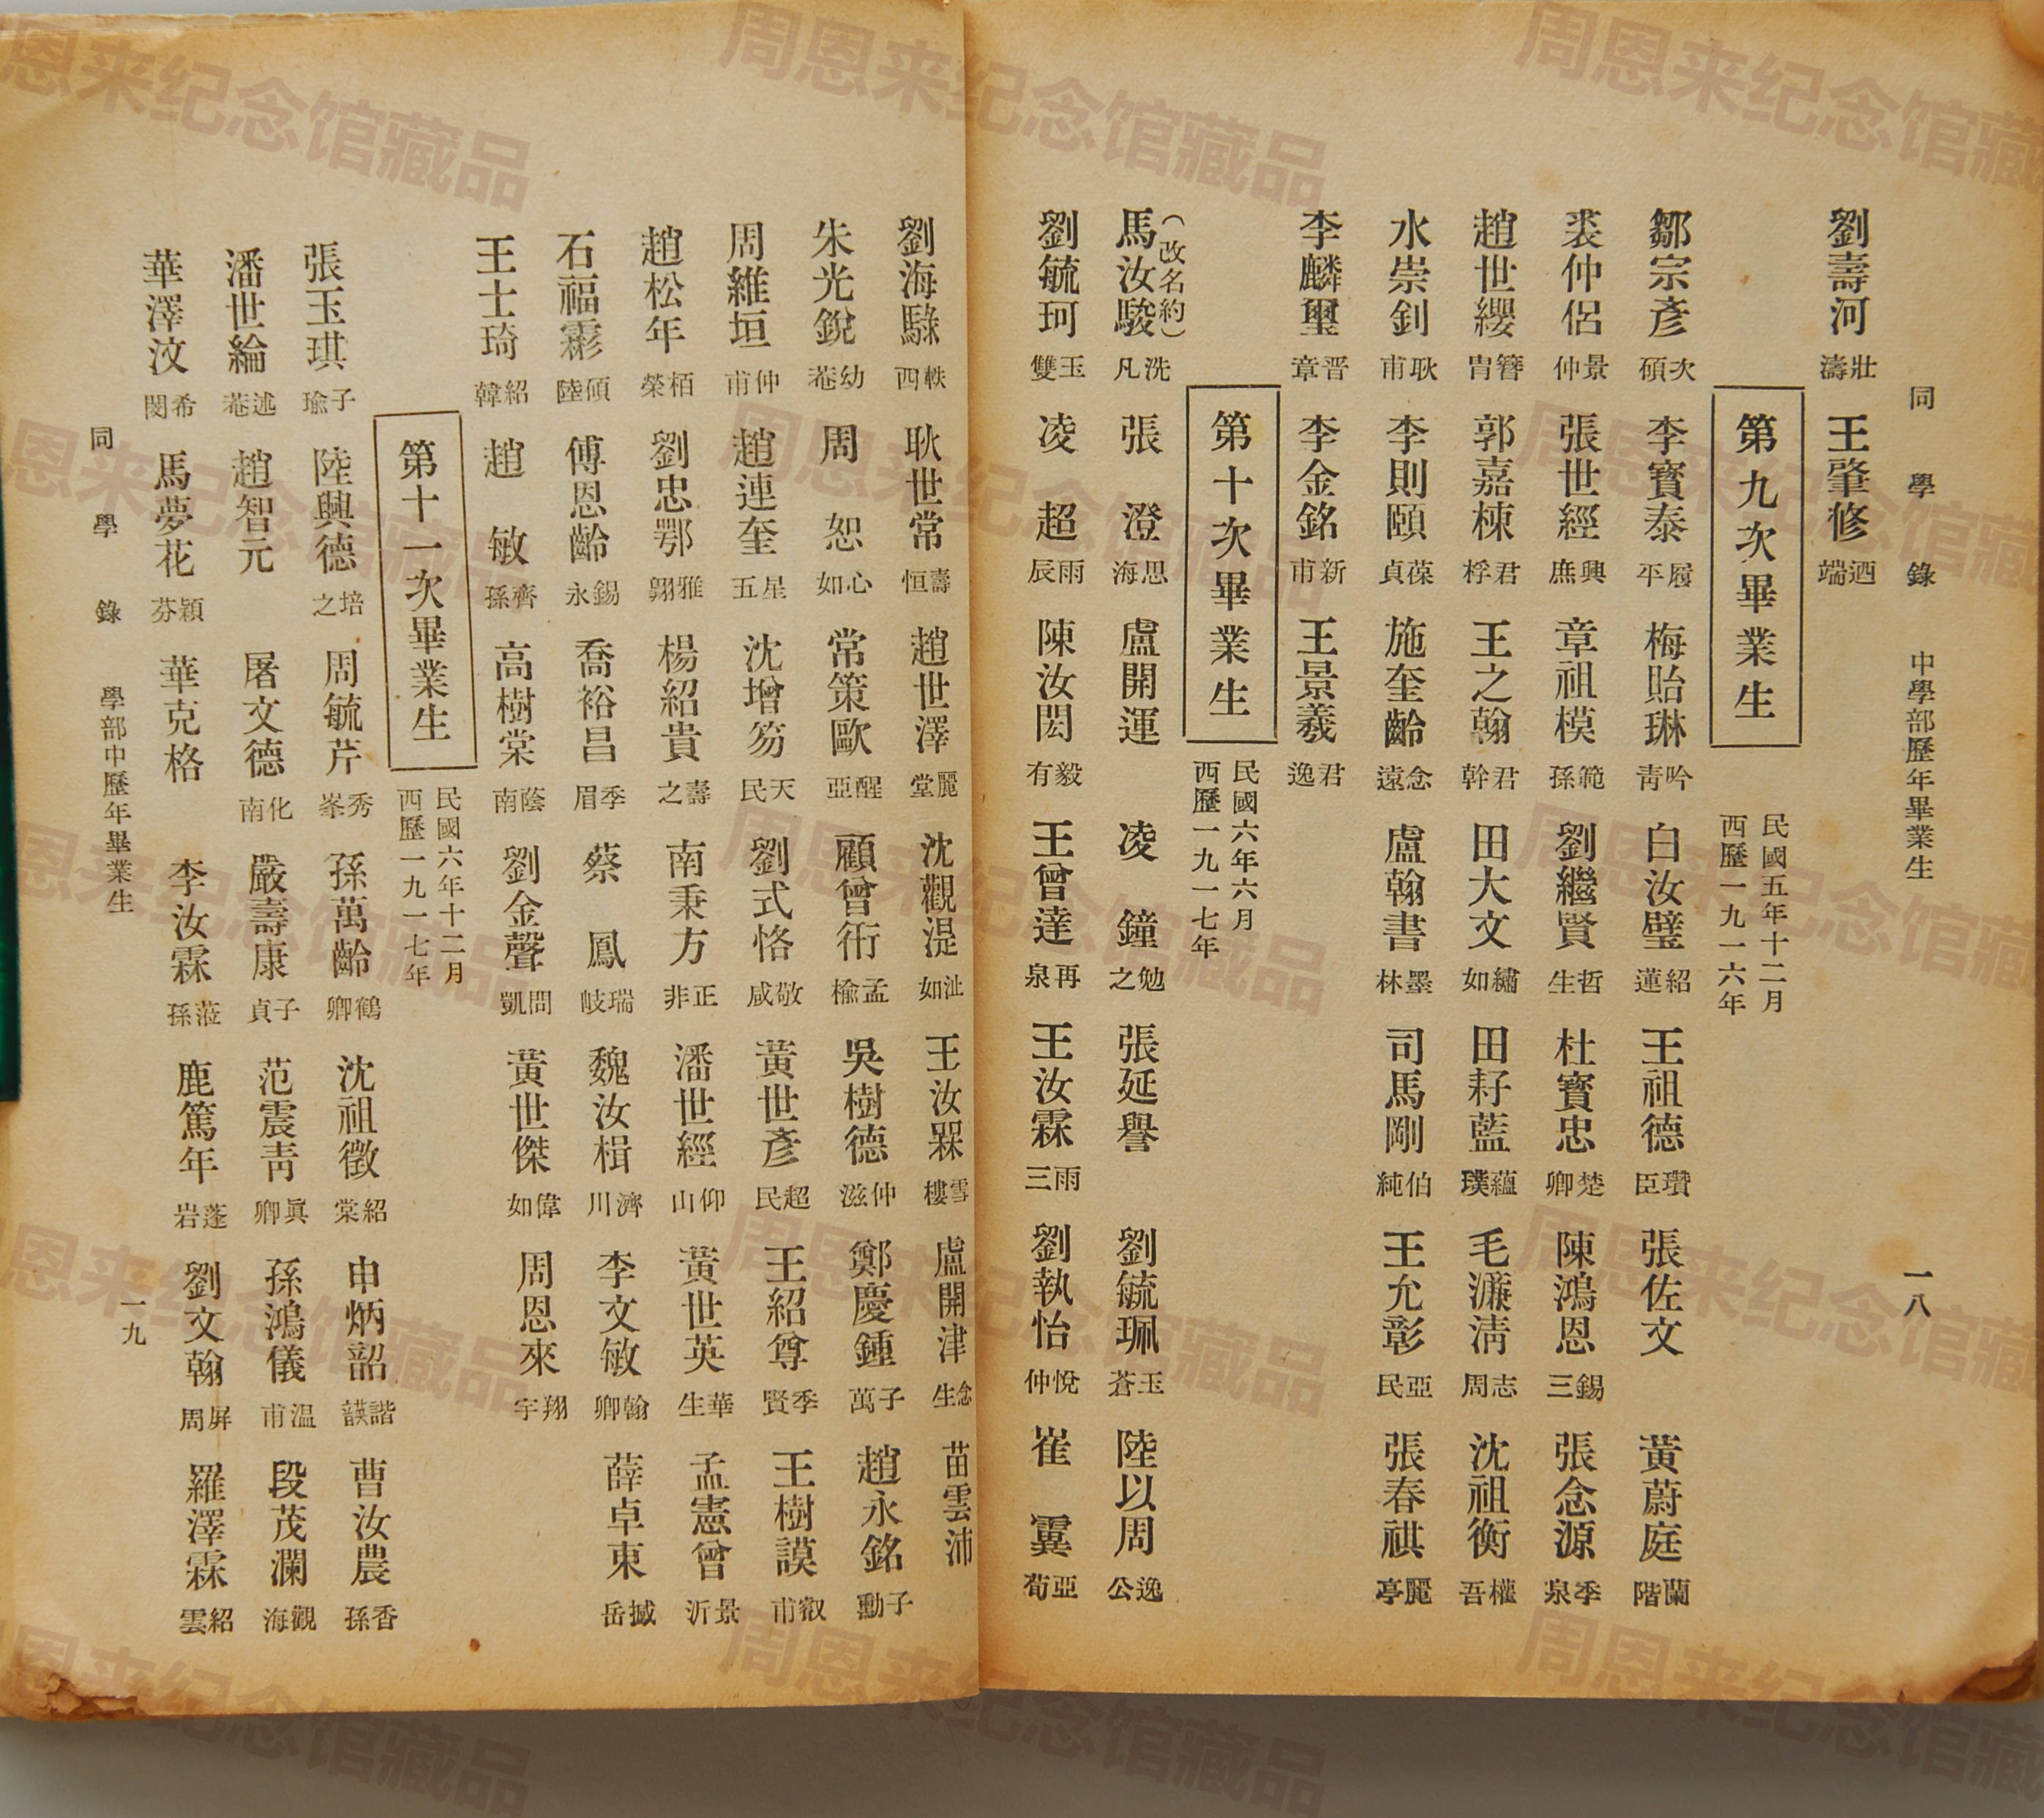 同學錄 中學部歷年畢業生 一八
劉壽河 壯濤 王肇修 迺端
第九次畢業生 民國五年十二月
西歷一九一六年
鄒宗彥 次碩 李寶泰 履平 梅貽琳 吟青 白汝璧 紹蓮 王祖德 瓚臣 張佐文 黃蔚庭 蘭階
裘仲侶 景仲 張世經 興庶 章祖模 範孫 劉繼賢 哲生 杜寶忠 楚卿 陳鴻恩 錫三 張念源 季泉
趙世纓 簪胄 郭嘉棟 君桴 王之翰 君幹 田大文 繡如 田籽藍 蘊璞 毛濂清 志周 沈祖衡 權吾
水崇釗 耿甫 李則頤 葆貞 施奎齡 念遠 盧翰書 墨林 司馬剛 伯純 王允彰 亞民 張春祺 麗亭
李麟璽 晋章 李金銘 新甫 王景羲 君逸
第十次畢業生 民國六年六月
西歷一九一七年
馬汝駿（改名約） 洗凡 張澄 思海 盧開運 凌鐘 勉之 張延譽 劉毓珮 玉蒼 陸以周 逸公
劉毓珂 玉雙 凌超 雨辰 陳汝閎 毅有 王曾達 再泉 王汝霖 雨三 劉執怡 悅仲 崔霬 亞荀
劉海騄 軼西 耿世常 壽恒 趙世澤 麗堂 沈觀湜 沚如 王汝槑 雪樓 盧開津 念生 苗雲沛
朱光銳 幼菴 周恕 心如 常策歐 醒亞 顧曾衍 孟楡 吳樹德 仲滋 鄭慶鍾 子萬 趙永銘 子勳
周維垣 仲甫 趙連奎 星五 沈增笏 天民 劉式恪 敬咸 黃世彥 超民 王紹尊 季賢 王樹謨 叡甫
趙松年 栢榮 劉忠鄂 雅翺 楊紹貴 壽之 南秉方 正非 潘世經 仰山 黃世英 華生 孟憲曾 景沂
石福霦 傾陸 傅恩齡 錫永 喬裕昌 季眉 蔡鳳 瑞岐 魏汝楫 濟川 李文敏 翰卿 薛卓東 撼岳
王士琦 紹韓 趙敏 齊孫 高樹棠 蔭南 劉金聲 問凱 黃世傑 偉如 周恩來 翔宇
第十一次畢業生 民國六年十二月
西歷一九一七年
張玉琪 子瑜 陸興德 培之 周毓芹 秀峯 孫萬齡 鶴卿 沈祖徵 紹棠 申炳韶 諧韺 曹汝農 香孫
潘世綸 述菴 趙智元 屠文德 化南 嚴壽康 子貞 范震青 眞卿 孫鴻儀 温甫 段茂瀾 觀海
華澤汶 希閔 馬夢花 穎芬 華克格 李汝霖 蒞孫 鹿篤年 蓬岩 劉文翰 屛周 羅澤霖 紹雲
同學錄 學部中歷年畢業生 一九
周恩来纪念馆藏品